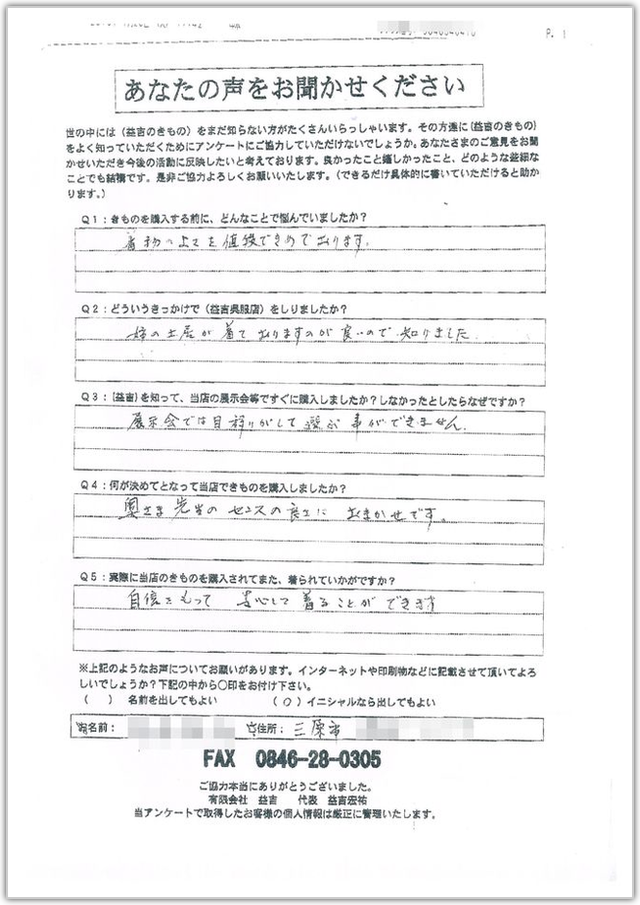 P. 1
あなたの声をお聞かせください
世の中には（益吉のきもの）をまだ知らない方がたくさんいらっしゃいます。その方達に（益吉のきもの）
をよく知っていただくためにアンケートにご協力していただけないでしょうか。あなたさまのご意見をお聞
かせいただき今後の活動に反映したいと考えております。良かったこと嬉しかったこと、どのような些細な
ことでも結構です。是非ご協力よろしくお願いいたします。（できるだけ具体的に書いていただけると助か
ります。）
Q1：きものを購入する前に、どんなことで悩んでいましたか？
着物の上でを値段できめております。
Q2：どういうきっかけで（益吉呉服店）をしりましたか？
姉の土居が着ておりますのが良いので知りました
Q3：（益吉）を知って、当店の展示会等ですぐに購入しましたか？しなかったとしたらなぜですか？
展示会では目移りがして選ぶ事ができません。
Q4：何が決めてとなって当店できものを購入しましたか？
奥さま先生のセンスの良さにおまかせです。
Q5：実際に当店のきものを購入されてまた、着られていかがですか？
自信をもって安心して着ることができます
※上記のようなお声についてお願いがあります。インターネットや印刷物などに記載させて頂いてよろ
しいでしょうか？下記の中から○印をお付け下さい。
（　）名前を出してもよい　（○）イニシャルなら出してもよい
お名前：　ご住所：三原市
FAX 0846-28-0305
ご協力本当にありがとうございました。
有限会社　益吉　代表　益吉宏祐
当アンケートで取得したお客様の個人情報は厳正に管理いたします。